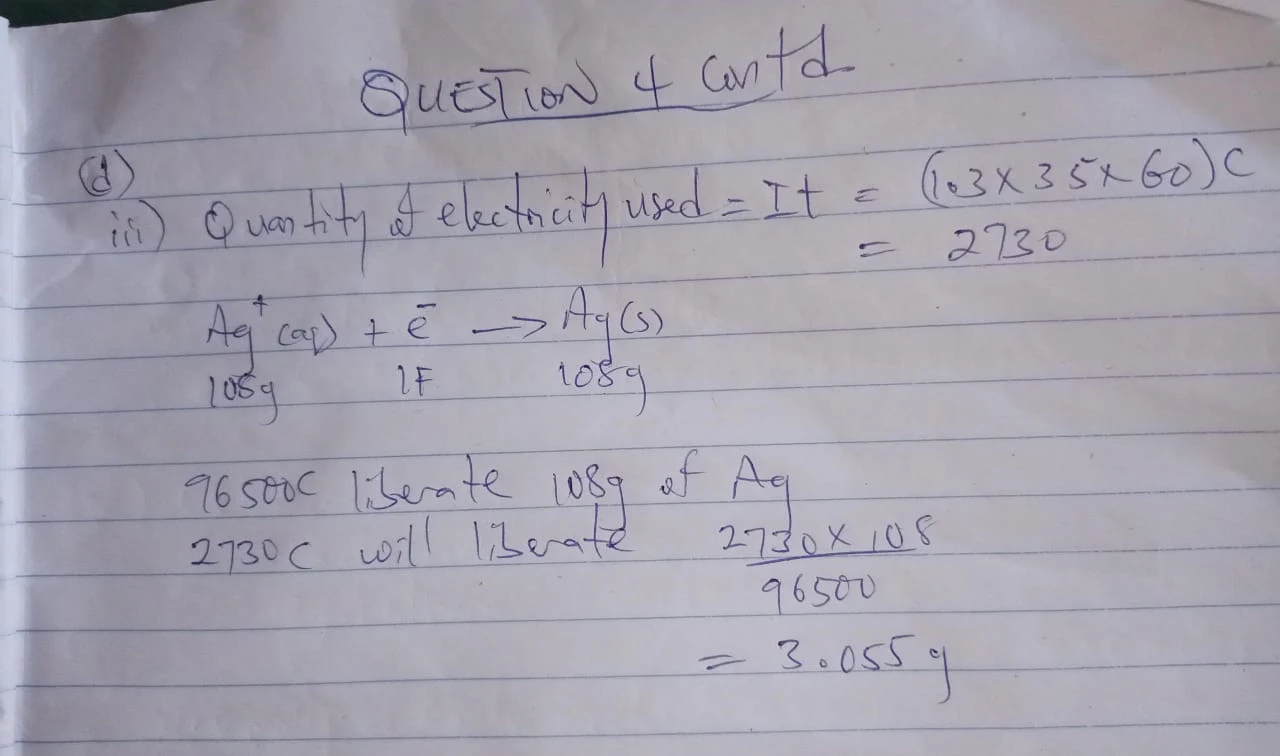 QUESTION 4 Cont'd
(d)
iii) Quantity of electricity used = It = (1.3 x 35 x 60)C
= 2730
Ag⁺(aq) + ē → Ag(s)
108g 1F 108g
96500C liberate 108g of Ag
2730C will liberate 2730 x 108
96500
= 3.055g